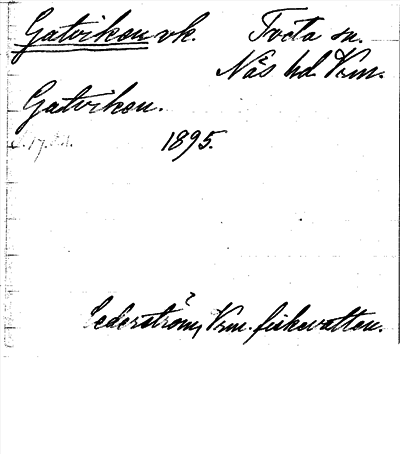 Gatviken vk. Tveta sn.
Näs hd. Vrm.
Gatviken.
1895.
Cederström, Vrm. fiskevatten.